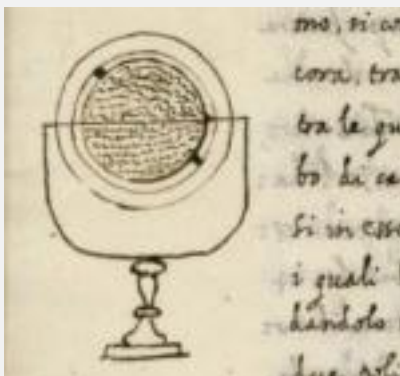 mo, si co
cora, tra
tra le qu
bo di ca
si in esso
i quali
dandolo
due poli